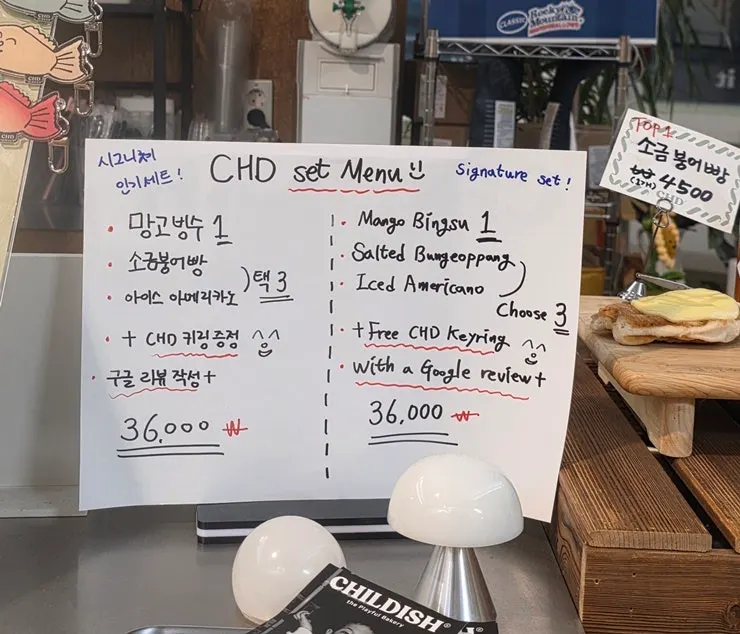 CLASSIC Rocky Mountain
MARSHMALLOWS
CHD
CHD
시그니처
인기세트!
CHD set Menu
Signature set!
망고빙수 1
소금붕어빵
아이스 아메리카노
택 3
+ CHD 키링증정 ^^
구글 리뷰 작성+
36,000 ₩
Mango Bingsu 1
Salted Bungeoppang
Iced Americano
Choose 3
+ Free CHD Keyring ^^
with a Google review+
36,000 ₩
TOP 1
소금 붕어빵
₩ 4500
(2개)
CHD
CHILDISH®
the Playful Bakery